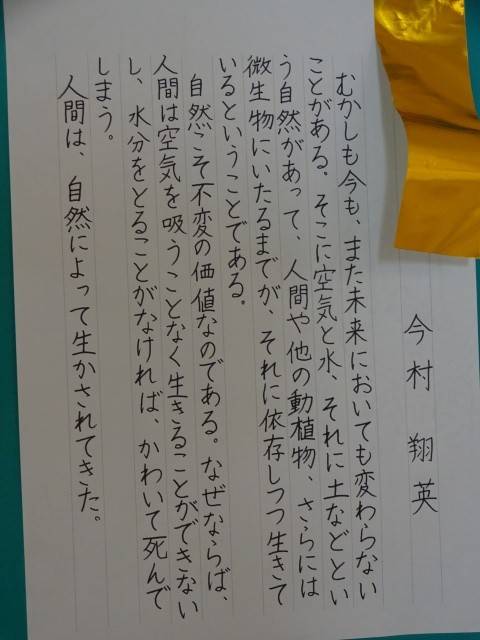 今村 翔英
むかしも今も、また未来においても変わらない
ことがある。そこに空気と水、それに土などとい
う自然があって、人間や他の動植物、さらには
微生物にいたるまでが、それに依存しつつ生きて
いるということである。
自然こそ不変の価値なのである。なぜならば、
人間は空気を吸うことなく生きることができない
し、水分をとることがなければ、かわいて死んで
しまう。
人間は、自然によって生かされてきた。